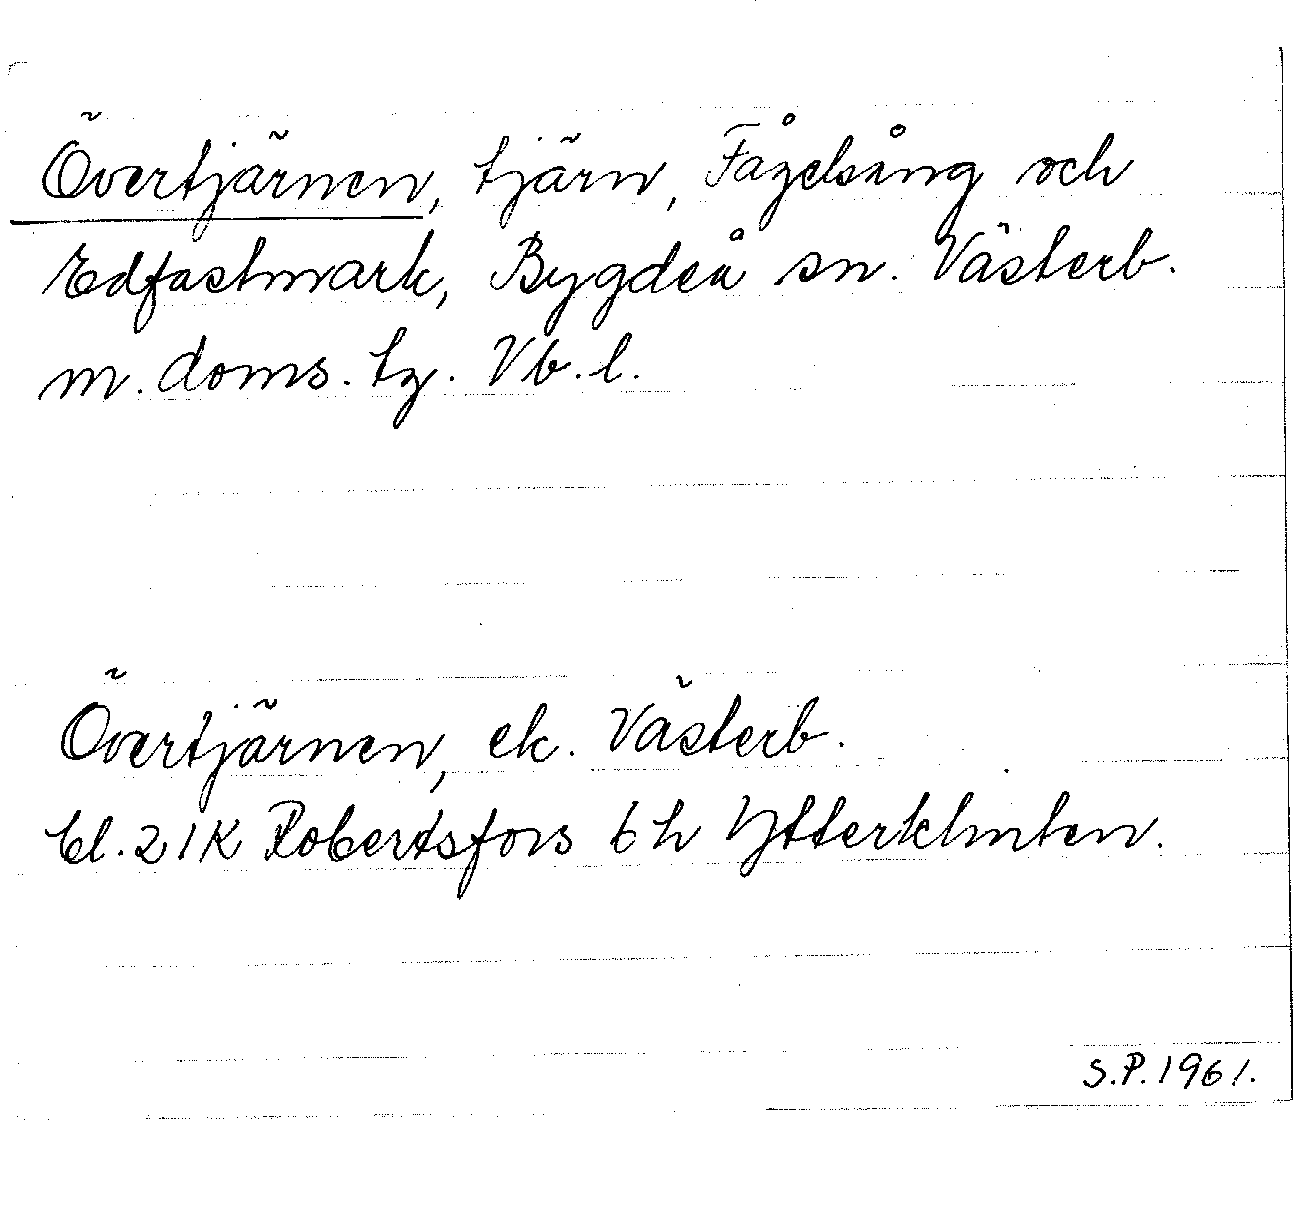 Övertjärnen, tjärn, Fågelsång och
Edfastmark, Bygdeå sn. Västerb.
m. doms. tg. Vb. l.
Övertjärnen, ek. Västerb.
bl. 21K Robertsfors 6h Ytterklinten.
S.P. 1961.